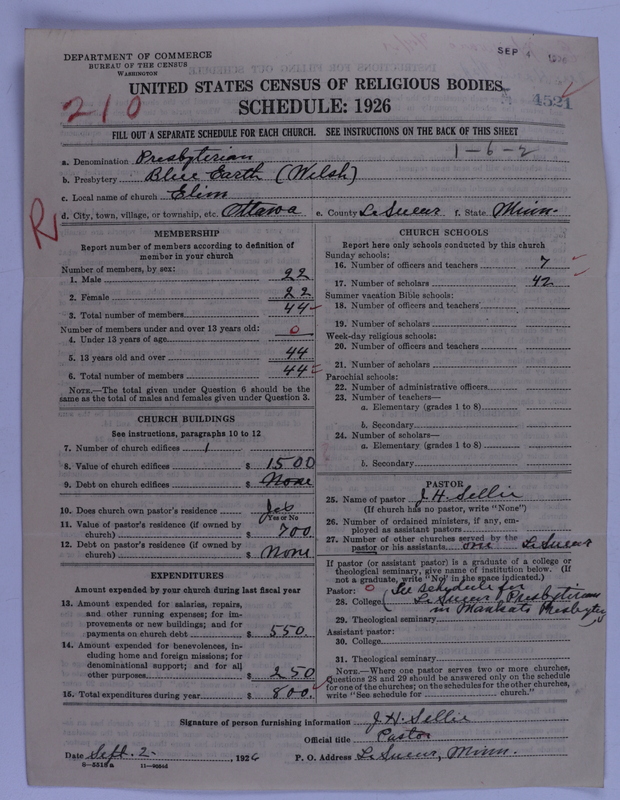 DEPARTMENT OF COMMERCE
BUREAU OF THE CENSUS
WASHINGTON
SEP 4 1926
UNITED STATES CENSUS OF RELIGIOUS BODIES
4521
SCHEDULE: 1926
210
FILL OUT A SEPARATE SCHEDULE FOR EACH CHURCH. SEE INSTRUCTIONS ON THE BACK OF THIS SHEET
1-6-2
a. Denomination Presbyterian
b. Presbytery Blue Earth (Welsh)
c. Local name of church Elim
d. City, town, village, or township, etc. Ottawa e. County Le Sueur f. State Minn.
R
MEMBERSHIP
Report number of members according to definition of
member in your church
Number of members, by sex:
1. Male 22
2. Female 22
3. Total number of members 44
Number of members under and over 13 years old:
4. Under 13 years of age 0
5. 13 years old and over 44
6. Total number of members 44
NOTE.—The total given under Question 6 should be the
same as the total of males and females given under Question 3.
CHURCH BUILDINGS
See instructions, paragraphs 10 to 12
7. Number of church edifices 1
8. Value of church edifices $ 1500
9. Debt on church edifices $ None
10. Does church own pastor's residence Yes
Yes or No
11. Value of pastor's residence (if owned by
church) $ 700
12. Debt on pastor's residence (if owned by
church) $ None
EXPENDITURES
Amount expended by your church during last fiscal year
13. Amount expended for salaries, repairs,
and other running expenses; for im-
provements or new buildings; and for
payments on church debt $ 550
14. Amount expended for benevolences, in-
cluding home and foreign missions; for
denominational support; and for all
other purposes $ 250
15. Total expenditures during year $ 800.
CHURCH SCHOOLS
Report here only schools conducted by this church
Sunday schools:
16. Number of officers and teachers 7
17. Number of scholars 42
Summer vacation Bible schools:
18. Number of officers and teachers
19. Number of scholars
Week-day religious schools:
20. Number of officers and teachers
21. Number of scholars
Parochial schools:
22. Number of administrative officers
23. Number of teachers—
a. Elementary (grades 1 to 8)
b. Secondary
24. Number of scholars—
a. Elementary (grades 1 to 8)
b. Secondary
PASTOR
25. Name of pastor J. H. Sellie
(If church has no pastor, write "None")
26. Number of ordained ministers, if any, em-
ployed as assistant pastors
27. Number of other churches served by the
pastor or his assistants one Le Sueur
If pastor (or assistant pastor) is a graduate of a college or
theological seminary, give name of institution below. (If
not a graduate, write "No" in the space indicated.)
Pastor: 0 (See schedule for
28. College Le Sueur Presbyterian
in Mankato Presbytery
29. Theological seminary
Assistant pastor:
30. College
31. Theological seminary
NOTE.—Where one pastor serves two or more churches,
Questions 28 and 29 should be answered only on the schedule
for one of the churches; on the schedules for the other churches,
write "See schedule for church."
Signature of person furnishing information J. H. Sellie
Official title Pastor
Date Sept. 2, 1926 P. O. Address Le Sueur, Minn.
8-5518a